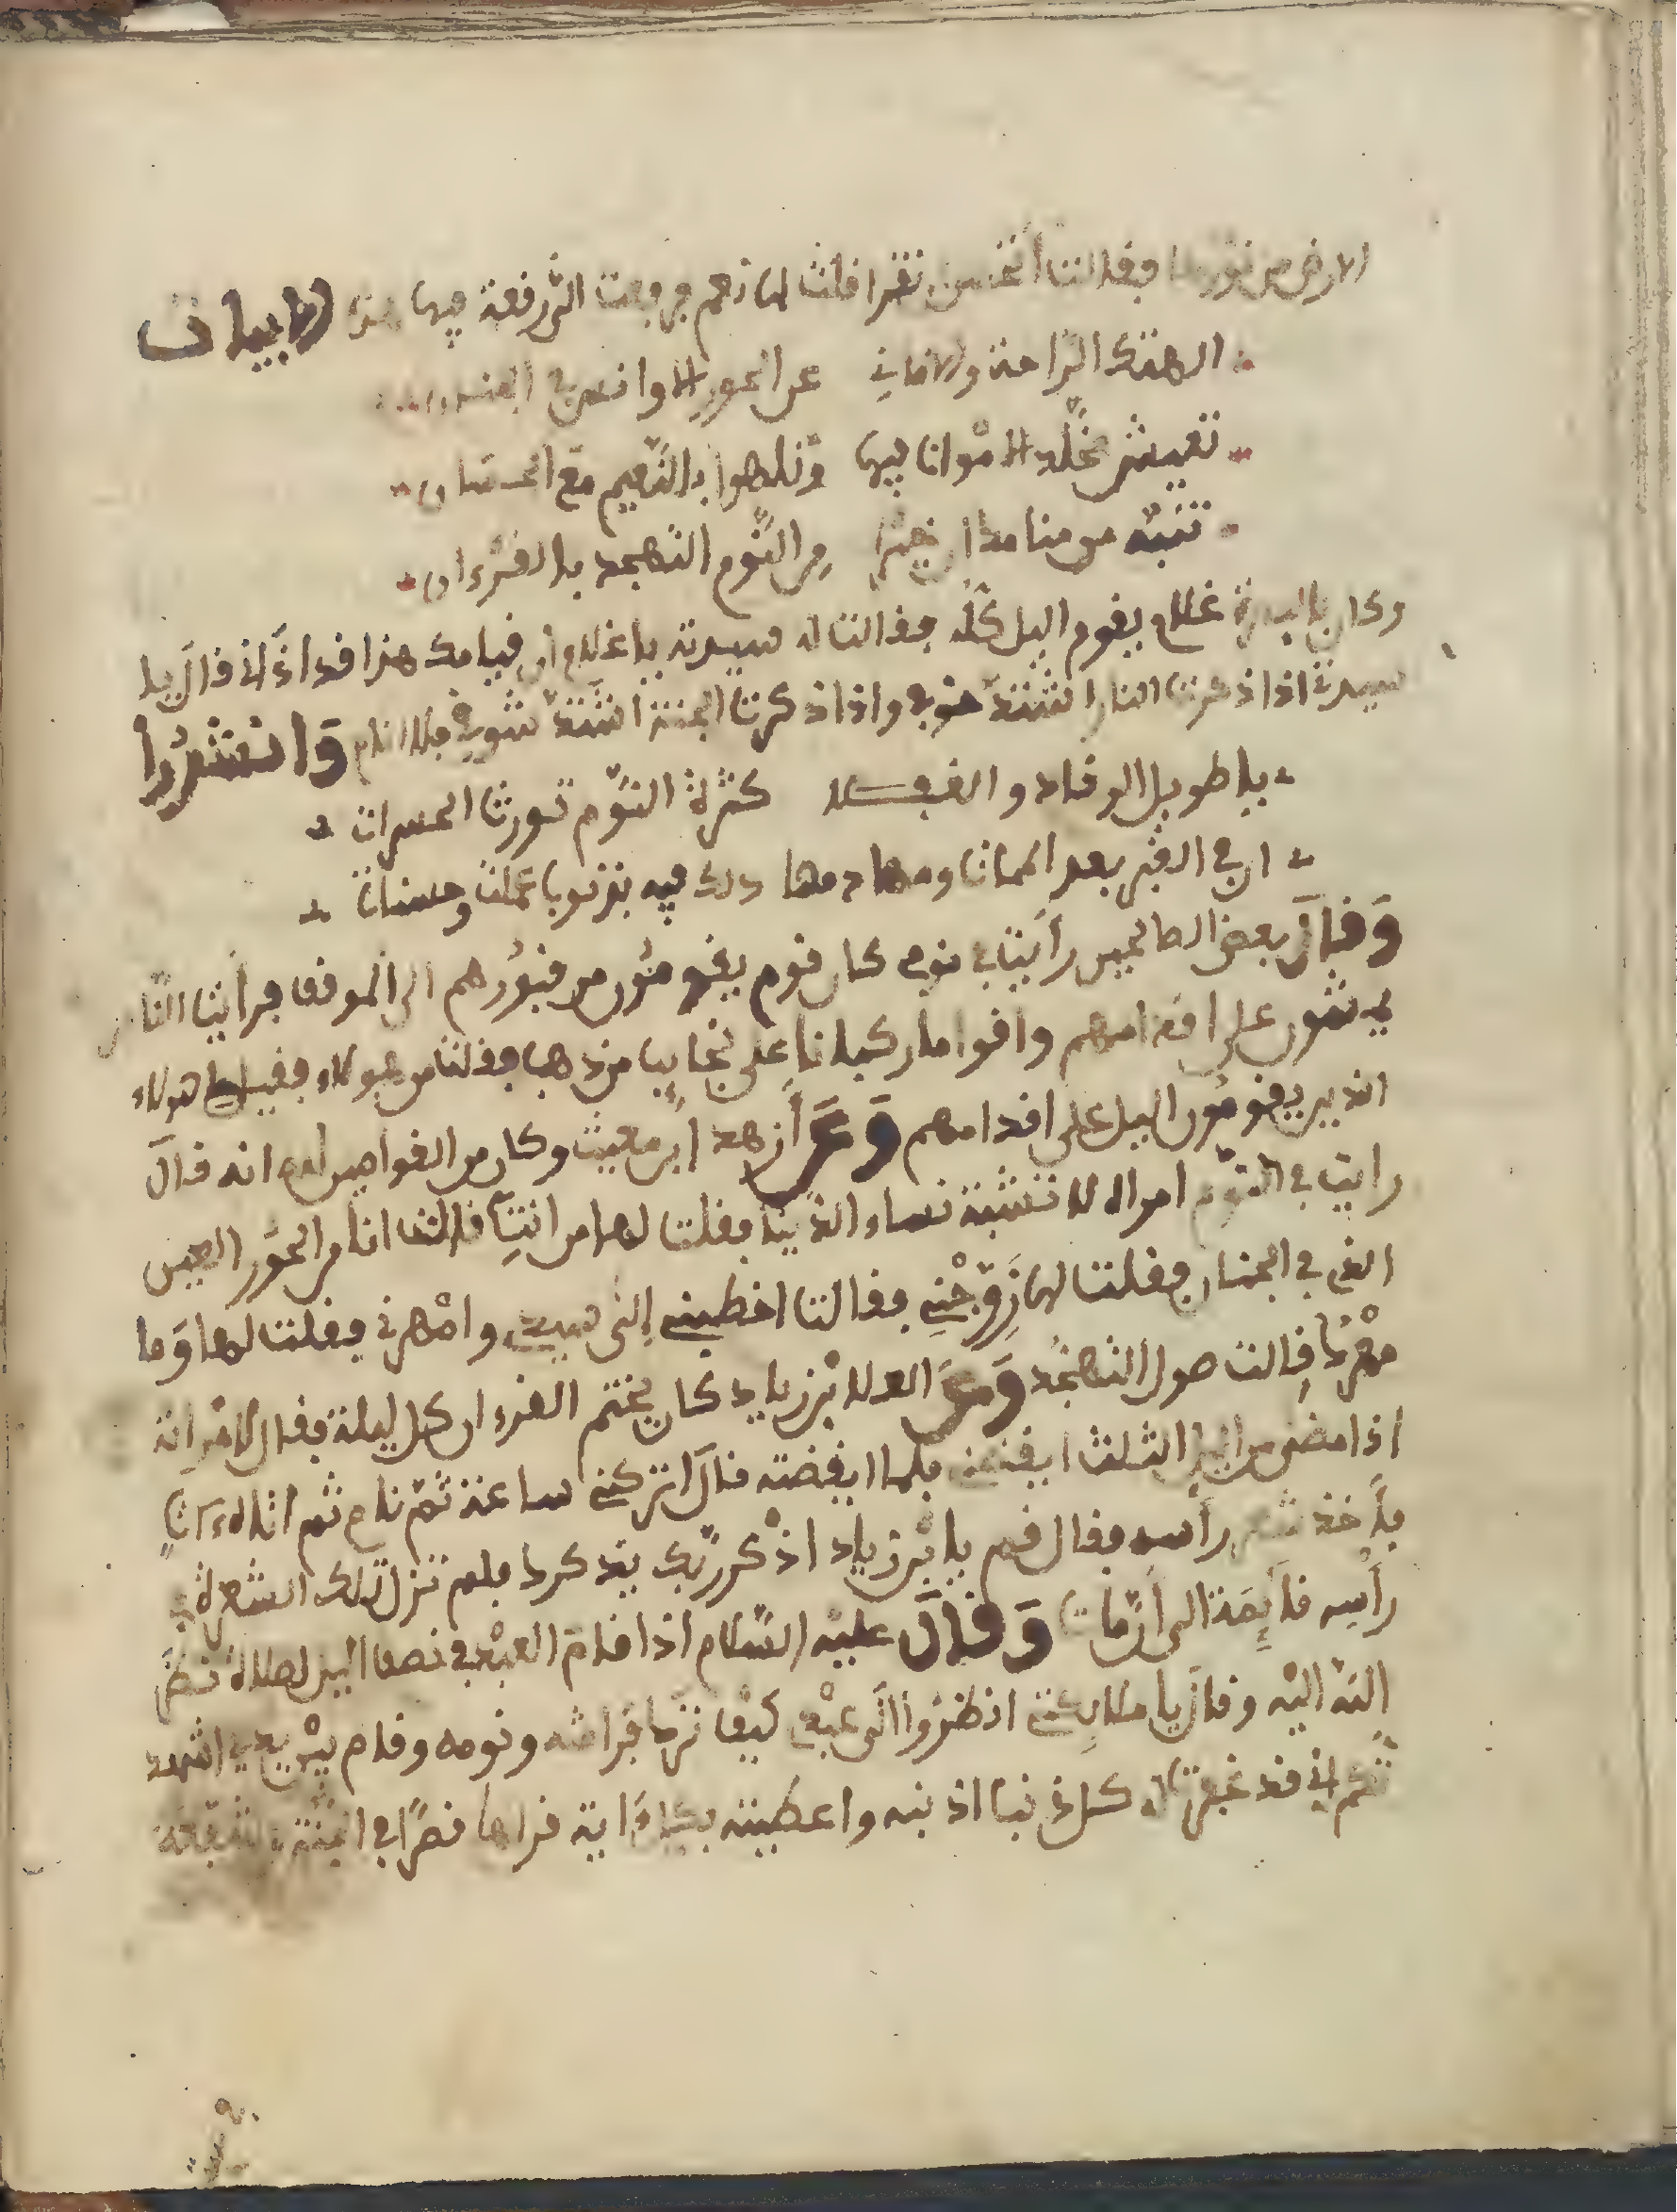 الارض من نورها فقالت اتحسن تقرا فلت لها نعم فرفعت الى رقعة فيها هذه الابيات
الهتك الراحة والاماني عن الحور الاوانس في الجنان
تعيش مخلد الا موتا فيها وتلهوا بالنعيم مع الحسان
تنبه من منامك ان خيرا من النوم التهجد بالقرءان
وكان بالبصرة غلام يقوم اليل كله فقالت له سيدته يا غلام ان قيامك هذا قد اذاني قال يا
سيدتي اذا ذكرت النار اشتد خوفي واذا ذكرت الجنة اشتد شوقي فلا انام وانشدوا
يا طويل الرقاد والغفلة كثرة النوم تورث الحسرات
ان في القبر بعد الممات ومهاد مهدا دلك فيه بذنوب عملت وحسنات
وقال بعض الصالحين رأيت في نومي كان قوم يقومون من قبورهم الى الموقف فرأيت الناس
يمشون على اقدامهم واقواما ركبانا على نجايب من ذهب فقلت من هولاء فقيل هولاء
الذين يقومون اليل على اقدامهم وعن ازهد ابن مغيث وكان من القوامين انه قال
رايت في النوم امراه لا تشبه نساء الدنيا فقلت لها من انت قالت انا من الحور العين
التي في الجنان فقلت لها زوجني فقالت اخطبني الى سيدي وامهرني فقلت لها وما
مهرك قالت طول التهجد وعن العلا بن زياد كان يختم القرءان كل ليلة فقال لامراته
اذا مضى من اليل الثلث ايقضني فلما ايقضته قال اتركني ساعة ثم نام ثم اتاه ءات
فاخذ شعر رأسه فقال قم يا بن زياد اذكر ربك يذكرك فلم تزل تلك الشعرة في
رأسه قايمة الى ان مات وقال عليه السلام اذا قام العبد في نصف اليل لصلاة نظر
الله اليه وقال يا ملايكتي انظروا الى عبدي كيف ترك فراشه ونومه وقام بين يدي اشهد
كم اني قد غفرت له كل ذنب اذنبه واعطيته بكل اية قراها قصرا في الجنة